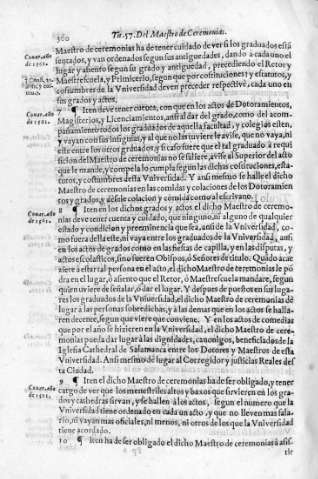 360
Tit. 57. Del Maestro de Ceremonias.
Maestro de ceremonias ha de tener cuidado de ver si los graduados estã
sentados, y van ordenados segun sus antiguedades, dando a cada uno el
lugar y asiento segun su grado y antiguedad, precediendo el Retor y
Maestrescuela, y Primicerio, segun que por costituciones y estatutos, y
costumbre de la Vniversidad deven preceder respective, cada uno en
sus grados y actos.
7 ¶ Iten deve tener cuenta, con que en los actos de Dotoramientos,
Magisterios, y Licenciamientos, ansi al dar del grado, como del acom-
pañamiento todos los graduados de aquella facultad, y colegios esten,
y vayan con sus insignias, y al que no las tuviere le avise, que no vaya, ni
este entre los otros graduados y si caso fuere que el tal graduado a requi
sicion del Maestro de ceremonias no se saliere, avise al Superior del acto
que le mande, y compela lo cumpla segun las dichas costituciones, esta-
tutos, y costumbres desta Vniversidad. Y ansi mesmo se halle el dicho
Maestro de ceremonias en las comidas y colaciones de los Dotoramien
tos y grados, y assiste colacion y comida como al escrivano.
8 ¶ Iten en los dichos grados y actos, el dicho Maestro de ceremo
nias deve tener cuenta y cuidado, que ninguno, ni alguno de qualquier
estado y condicion y preeminencia que sea, ansi de la Vniversidad, co-
mo fuera della este, ni vaya entre los graduados de la Vniversidad, ansi
en los actos de grados como en las fiestas de capilla, y en las disputas, y
actos escolasticos, sino fueren Obispos, ò Señores de titulo. Quãdo acae
ciere à estar tal persona en el acto, el dicho Maestro de ceremonias le pò
dra en el lugar, ò asiento que el Retor, ò Maestrescuela mandare, segun
quien uviere de se señalar, ò dar el lugar. Y despues de puestos en sus luga-
res los graduados de la Vniversidad, el dicho Maestro de ceremonias dê
lugar a las personas sobredichas, y a las demas que en los actos se halla-
ren decente, segun que viere que conviene. Y en los autos de comedias
que por el año se hizieren en la Vniversidad, el dicho Maestro de cere-
monias pueda dar lugar a las dignidades, canonigos, beneficiados de la
Iglesia Cathedral de Salamanca entre los Dotores y Maestros de esta
Vniversidad. Ansi mesmo de lugar al Corregidor y justicias Reales des
ta Ciudad.
9 ¶ Iten el dicho Maestro de ceremonias ha de ser obligado, y tener
cargo de ver que los menestriles altos y baxos que sirvieren en los gra-
dos y cathedras sirvan, y se hallen a los actos, segun el numero que la
Vniversidad tiene ordenado en cada un acto, y que no lleven mas sala-
rio, ni vayan mas oficiales, ni menos, ni otros de los que la Vniversidad
tiene acordado.
10 ¶ Iten ha de ser obligado el dicho Maestro de ceremonias à asis-